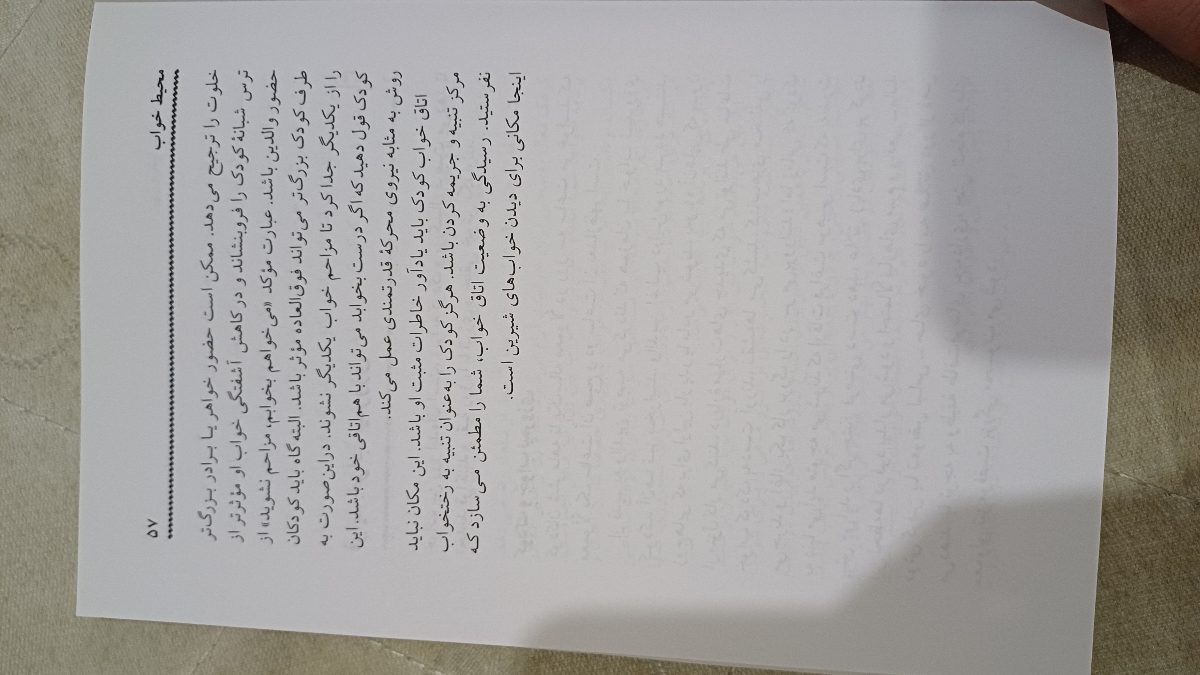 محیط خواب ۵۷
خلوت را ترجیح می‌دهد. ممکن است حضور خواهر یا برادر بزرگ‌تر
ترس شبانهٔ کودک را فروبنشاند و در کاهش آشفتگی خواب او مؤثرتر از
حضور والدین باشد. عبارت مؤکد «می‌خواهم بخوابم، مزاحم نشوید» از
طرف کودک بزرگ‌تر می‌تواند فوق‌العاده مؤثر باشد. البته گاه باید کودکان
را از یکدیگر جدا کرد تا مزاحم خواب یکدیگر نشوند. دراین‌صورت به
کودک قول دهید که اگر درست بخوابد می‌تواند با هم‌اتاقی خود باشد. این
روش به مثابه نیروی محرکهٔ قدرتمندی عمل می‌کند.
اتاق خواب کودک باید یادآور خاطرات مثبت او باشد. این مکان نباید
مرکز تنبیه و جریمه کردن باشد. هرگز کودک را به‌عنوان تنبیه به رختخواب
نفرستید. رسیدگی به وضعیت اتاق خواب، شما را مطمئن می‌سازد که
اینجا مکانی برای دیدن خواب‌های شیرین است.